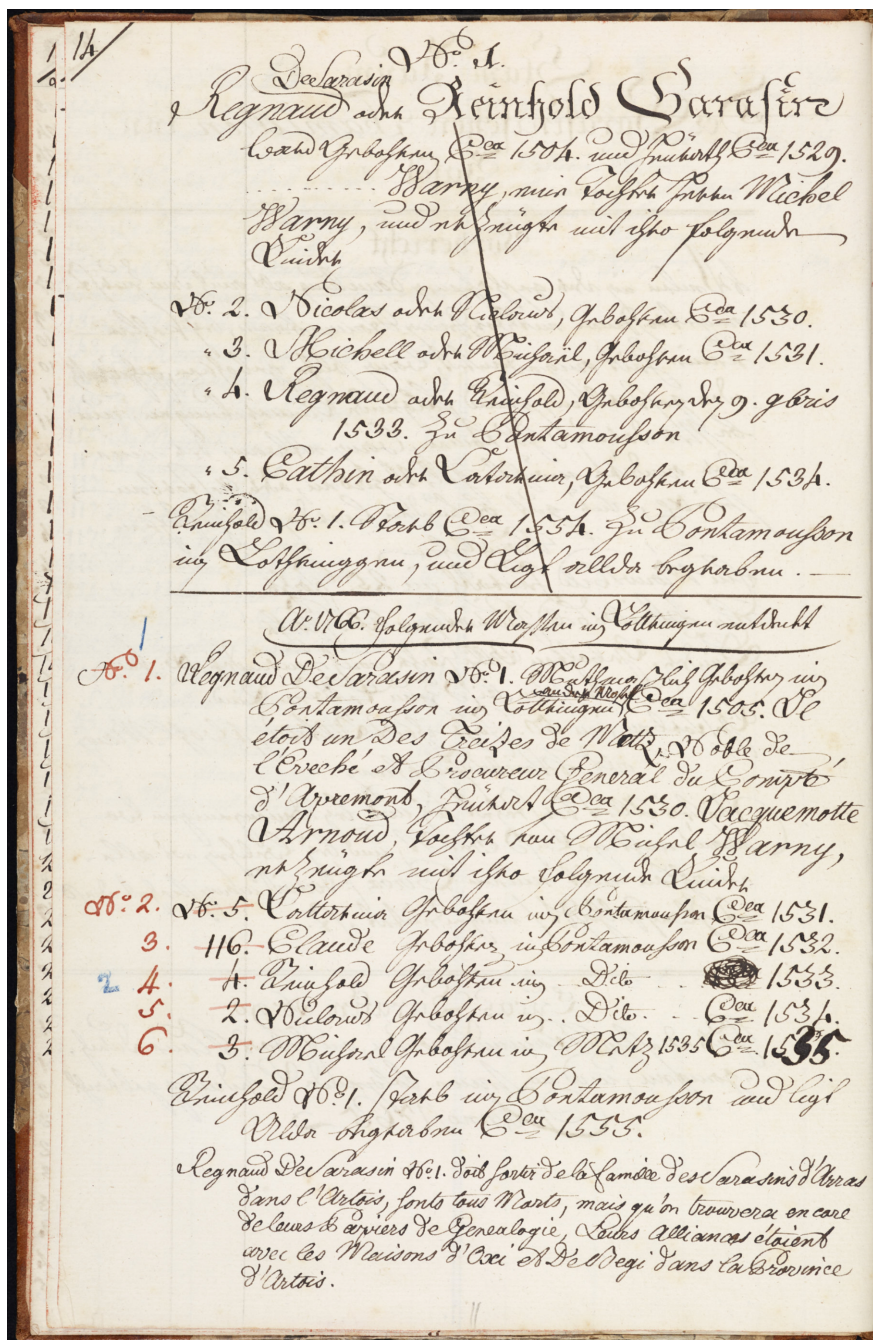 14
No. 1.
De Sarasin
Regnaud oder Reinhold Sarasin
ward Gebohren Cca 1504. und heürath Cca 1529.
......... Warny, eine Tochter Herrn Michel
Warny, und erzeügte mit ihro folgende
Kinder
No. 2. Nicolas oder Niclaus, Gebohren Cca 1530.
" 3. Michell oder Michael, Gebohren Cca 1531.
" 4. Regnaud oder Reinhold, Gebohren den 9. 9bris
1533. zu Pontamousson
" 5. Cathin oder Catarina, Gebohren Cca 1534.
Reinhold No. 1. Starb Cca 1554. zu Pontamousson
in Lothringgen, und Ligt allda begraben.
Ao. 1766. folgender Massen in Lottringen entdeckt
1
No. 1. Regnaud De Sarasin No. 1. Muthmaslich Gebohren in
Pontamousson in Lottringen an der Mosel Cca 1505. Il
étoit un Des Treizes de Metz, Noble de
l'Eveché et Procureur General du Compté
d'Apremont, heürart Cca 1530. Jacquemotte
Arnoud, Tochter von Michel Warny,
erzeügte mit ihro folgende Kinder
No. 2. No. 5. Cattarina Gebohren in Pontamousson Cca 1531.
3. 116. Claude Gebohren in Pontamousson Cca 1532.
2 4. 4. Reinhold Gebohren in .. Dito .. 1533.
5. 2. Niclaus Gebohren in .. Dito .. Cca 1534.
6. 3. Michael Gebohren in Metz 1535 Cca 1535.
Reinhold No. 1. starb in Pontamousson und ligt
Alda begraben Cca 1555.
Regnaud De Sarasin No. 1. doit sortir de la famille des Sarasins d'Arras
dans l'Artois, sonts tous Morts, mais qu'on trouvera encore
de leurs Papiers de Genealogie, Leurs Alliances étoient
avec les Maisons d'Oxi et De Begi dans la Province
d'Artois.